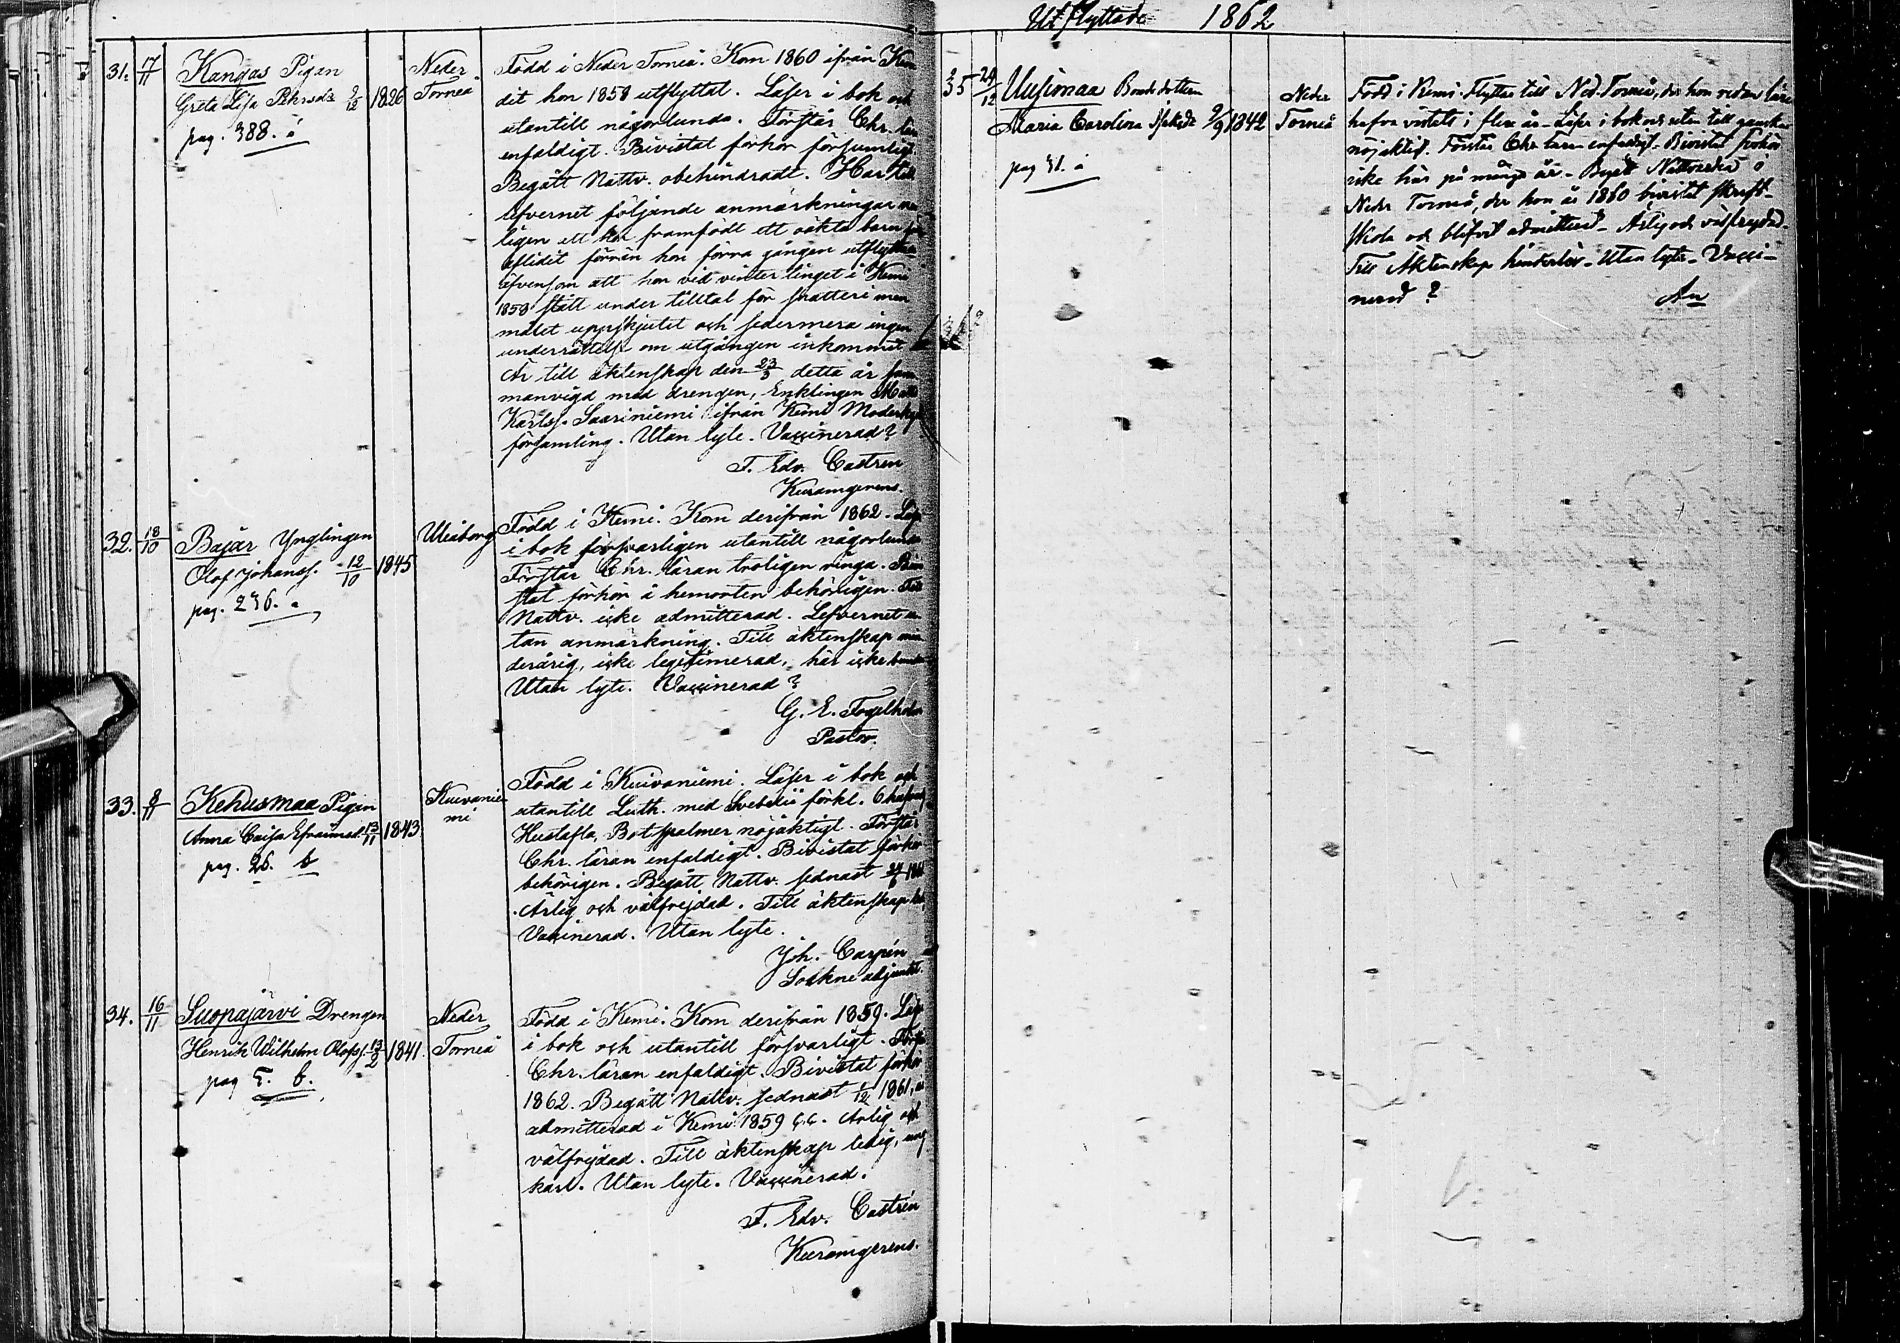 31. 17/11 Kangas Pigan
Greta Lisa Pehrsdr 9/12 1826
pag. 388. a
Neder
Torneå
Född i Neder Torneå. Kom 1860 ifrån
dit hon 1858 utflyttat. Läser i bok och
utantill någorlunda. Förstår Chr. lär
enfaldigt. Bivistat förhör försumligt
Begått Nattv. obehindradt. Har till
lefvernet följande anmärkningar
ligen att hon framfödt ett oäkta barn
aflidet förrän hon förra gången utflytta
äfvensom att hon vid vintertinget i Kemi
1858 stått under tilltal för snatteri men
målet uppskjutet och sedermera ingen
underrättelse om utgången inkommit
Är till äktenskap den 23/3 detta år sam
manvigd med drengen, Enklingen
Karlss. Saariniemi ifrån Kemi Moderkyr
församling. Utan lyte. Vaccinerad?
F. Edv. Castrén
Kuramgerens.
32. 18/10 Bajar Ynglingen
Olof Johanss. 12/10 1845
pag. 236. a
Uleåborg
Född i Kemi. Kom derifrån 1862. Läs
i bok försvarligen utantill någorlunda
Förstår Chr. läran troligen ringa. Bivi
stat förhör i hemorten behörigen. Till
Nattv. icke admitterad. Lefvernet u
tan anmärkning. Till äktenskap min
derårig, icke legitimerad, här icke
Utan lyte. Vaccinerad?
G. E. Fogelholm
Pastor.
33. 8/11 Kehusmaa Pigan
Anna Caisa Efraimsd. 13/11 1843
pag. 26. b
Kuivanie
mi
Född i Kuivaniemi. Läser i bok och
utantill Luth. med Svebelii förkl.
Hustafla, Botpsalmer nöjaktigt. Förstår
Chr. läran enfaldigt. Bivistat förhör
behörigen. Begått Nattv. sednast 24/6
Ärlig och välfrejdad. Till äktenskap
Vaccinerad. Utan lyte.
Joh. Carpén
Sockne adjunkt.
34. 16/11 Suopajärvi Drengen
Henrik Wilhelm Olofss. 13/2 1841
pag 5. b.
Neder
Torneå
Född i Kemi. Kom derifrån 1859. Läs
i bok och utantill försvarligt. Först
Chr. läran enfaldigt. Bivistat förhör
1862. Begått Nattv. sednast 1/12 1861,
admitterad i Kemi 1859 Ärlig och
välfrejdad. Till äktenskap ledig, ung
karl. Utan lyte. Vaccinerad.
F. Edv. Castrén
Kuramgerens.
Utflyttade 1862
35 29/12 Uusimaa Bondedottern
Maria Carolina 9/9 1842
pag 31. a
Neder
Torneå
Född i Kemi. Flyttar till Ned. Torneå, der hon redan lärer
hafva vistats i flera år. Läser i bok och utan till ganska
nöjaktigt. Förstår Chr. läran enfaldigt. Bivistat förhör
icke här på många år. Begått Nattvarden i
Neder Torneå, der hon år 1860 bivistat skrift-
skola och blifvit admitterad. Ärlig och välfrejdad.
Till Äktenskap hinderlös. Utan lyte. Vacci-
nerad?